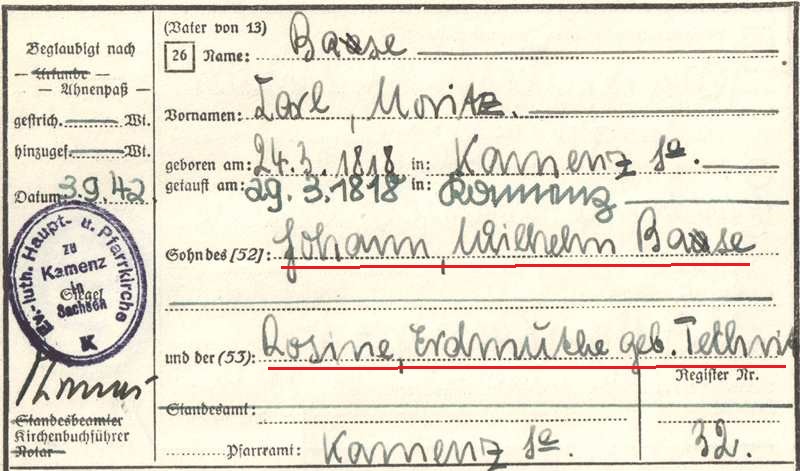 (Vater von 13)
Beglaubigt nach
26 Name: Baase
Urkunde
Ahnenpaß
Vornamen: Karl, Moritz.
gestrich. Wi.
hinzugef. Wi.
geboren am: 24.3.1818 in: Kamenz Sa.
Datum: 3.9.42
getauft am: 29.3.1818 in: Kamenz
Ev.-luth. Haupt- u. Pfarrkirche
zu
Kamenz
in
Siegel
Sachsen
K
Sohn des [52]: Johann, Wilhelm Baase
und der (53): Rosine, Erdmuthe geb.
Register Nr.
Standesbeamter
Kirchenbuchführer
Notar
Standesamt:
Pfarramt: Kamenz Sa. 32.